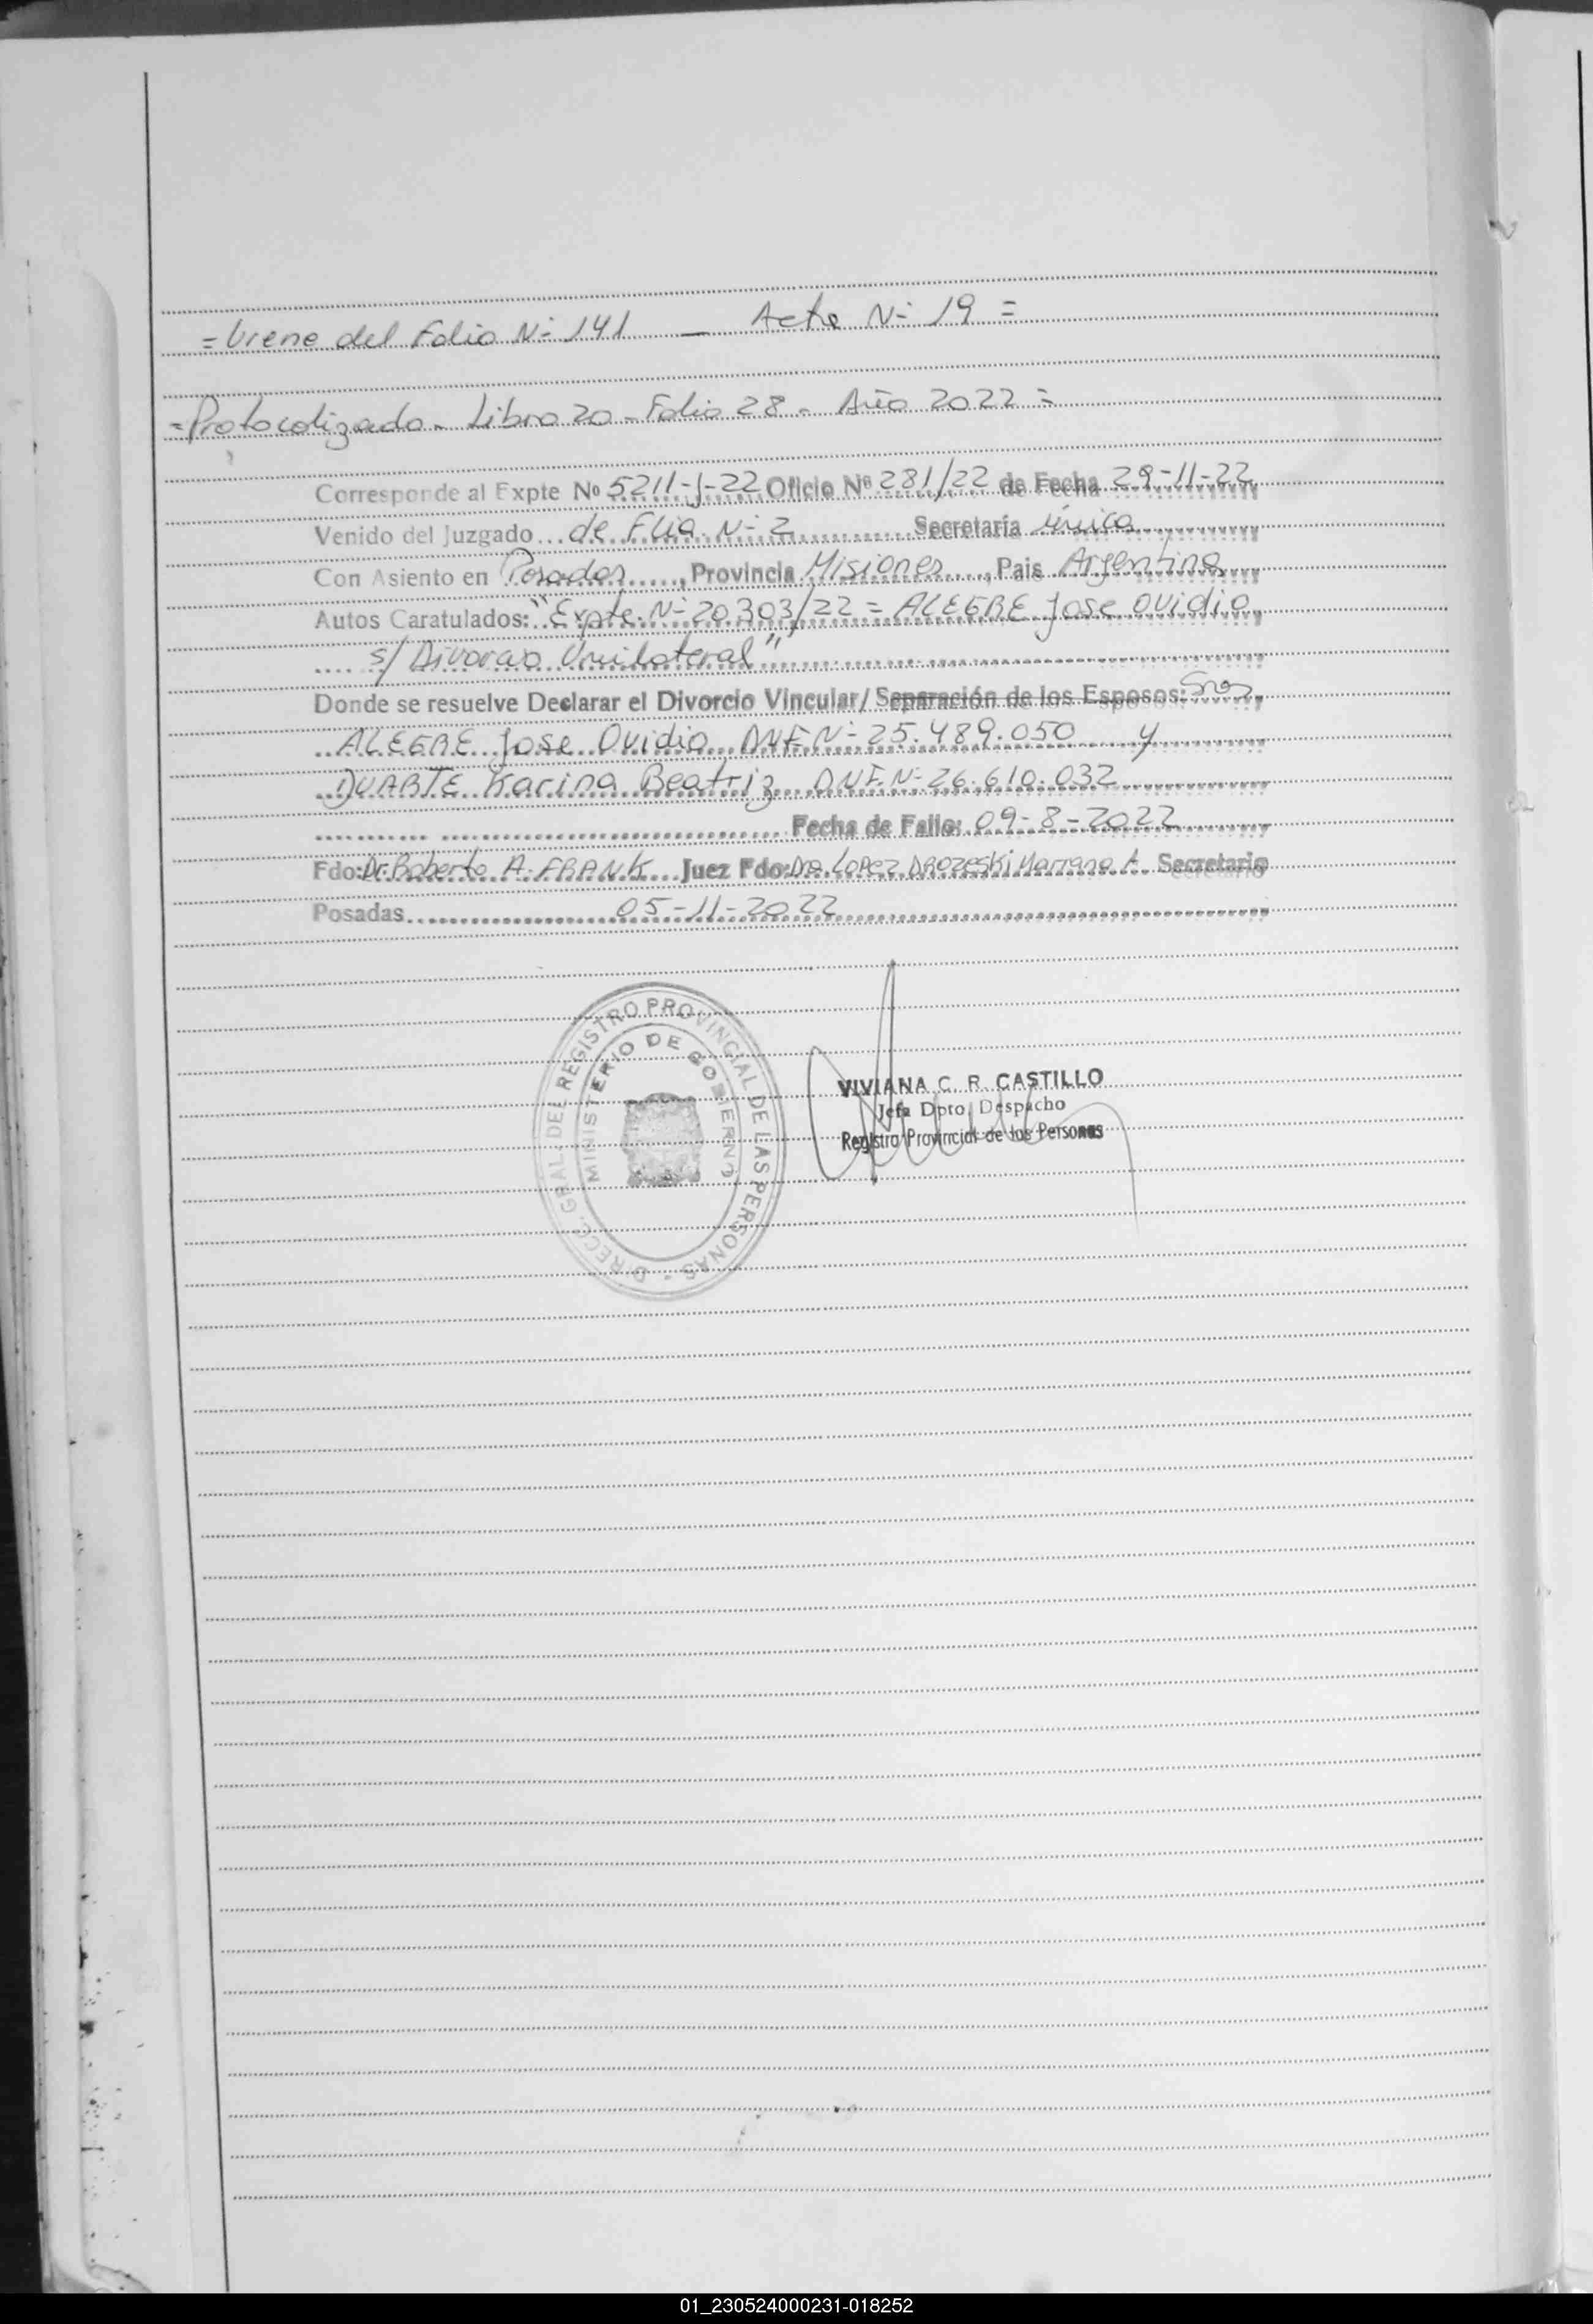 = Viene del Folio Nº 141 — Acta Nº 19 =
= Protocolizado - Libro 20 - Folio 28 - Año 2022 =
Corresponde al Expte Nº 5211-J-22 Oficio Nº 281/22 de Fecha 29-11-22
Venido del Juzgado de Flia. Nº 2 Secretaría única
Con Asiento en Posadas, Provincia Misiones, Pais Argentina
Autos Caratulados: "Expte. Nº 20.303/22 = ALEGRE Jose Ovidio
s/ Divorcio Unilateral"
Donde se resuelve Declarar el Divorcio Vincular/ Separación de los Esposos: Sres.
ALEGRE Jose Ovidio DNI Nº 25.489.050 y
DUARTE Karina Beatriz DNI. Nº 26.610.032
Fecha de Fallo: 09-8-2022
Fdo: Dr. Roberto A. FRANK Juez Fdo: Dra. LOPEZ DROZESKI Mariana A. Secretario
Posadas 05-11-2022
DIRECC. GRAL. DEL REGISTRO PROVINCIAL DE LAS PERSONAS -
MINISTERIO DE GOBIERNO
VIVIANA C. R. CASTILLO
Jefa Dpto. Despacho
Registro Provincial de las Personas
01_230524000231-018252